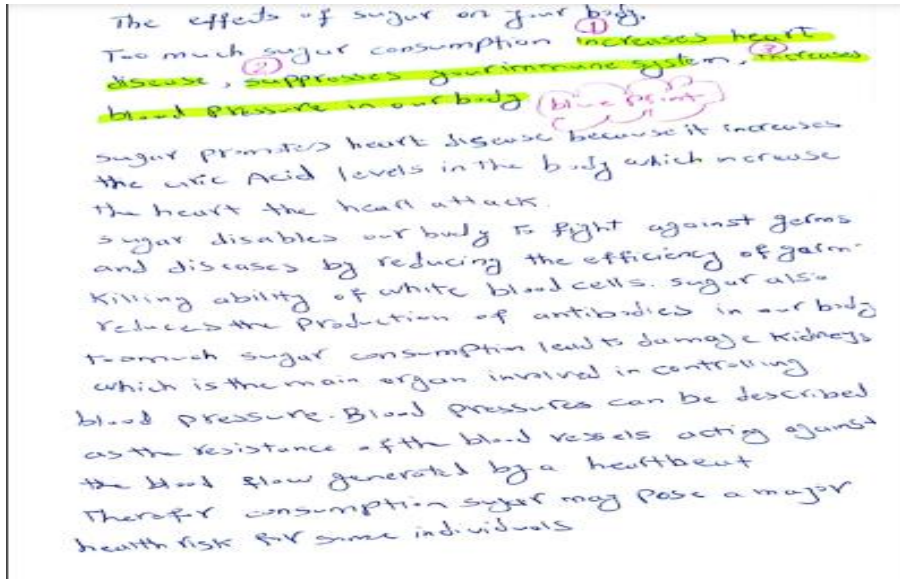 The effects of sugar on your body.
Too much sugar consumption ① increases heart
disease, ② suppresses your immune system, ③ increases
blood pressure in our body (blue print)
sugar promotes heart disease because it increases
the uric Acid levels in the body which ncrease
the heart the heart attack.
sugar disables our body to fight against germs
and diseases by reducing the efficiency of garm-
killing ability of white blood cells. sugar also
reduces the production of antibodies in our body
toomuch sugar consumption lead to damage kidneys
which is the main organ involved in controlling
blood pressure. Blood pressures can be described
as the resistance of the blood vessels acting against
the blood flow generated by a heartbeat
Therefor consumption sugar may pose a major
health risk for some individuals